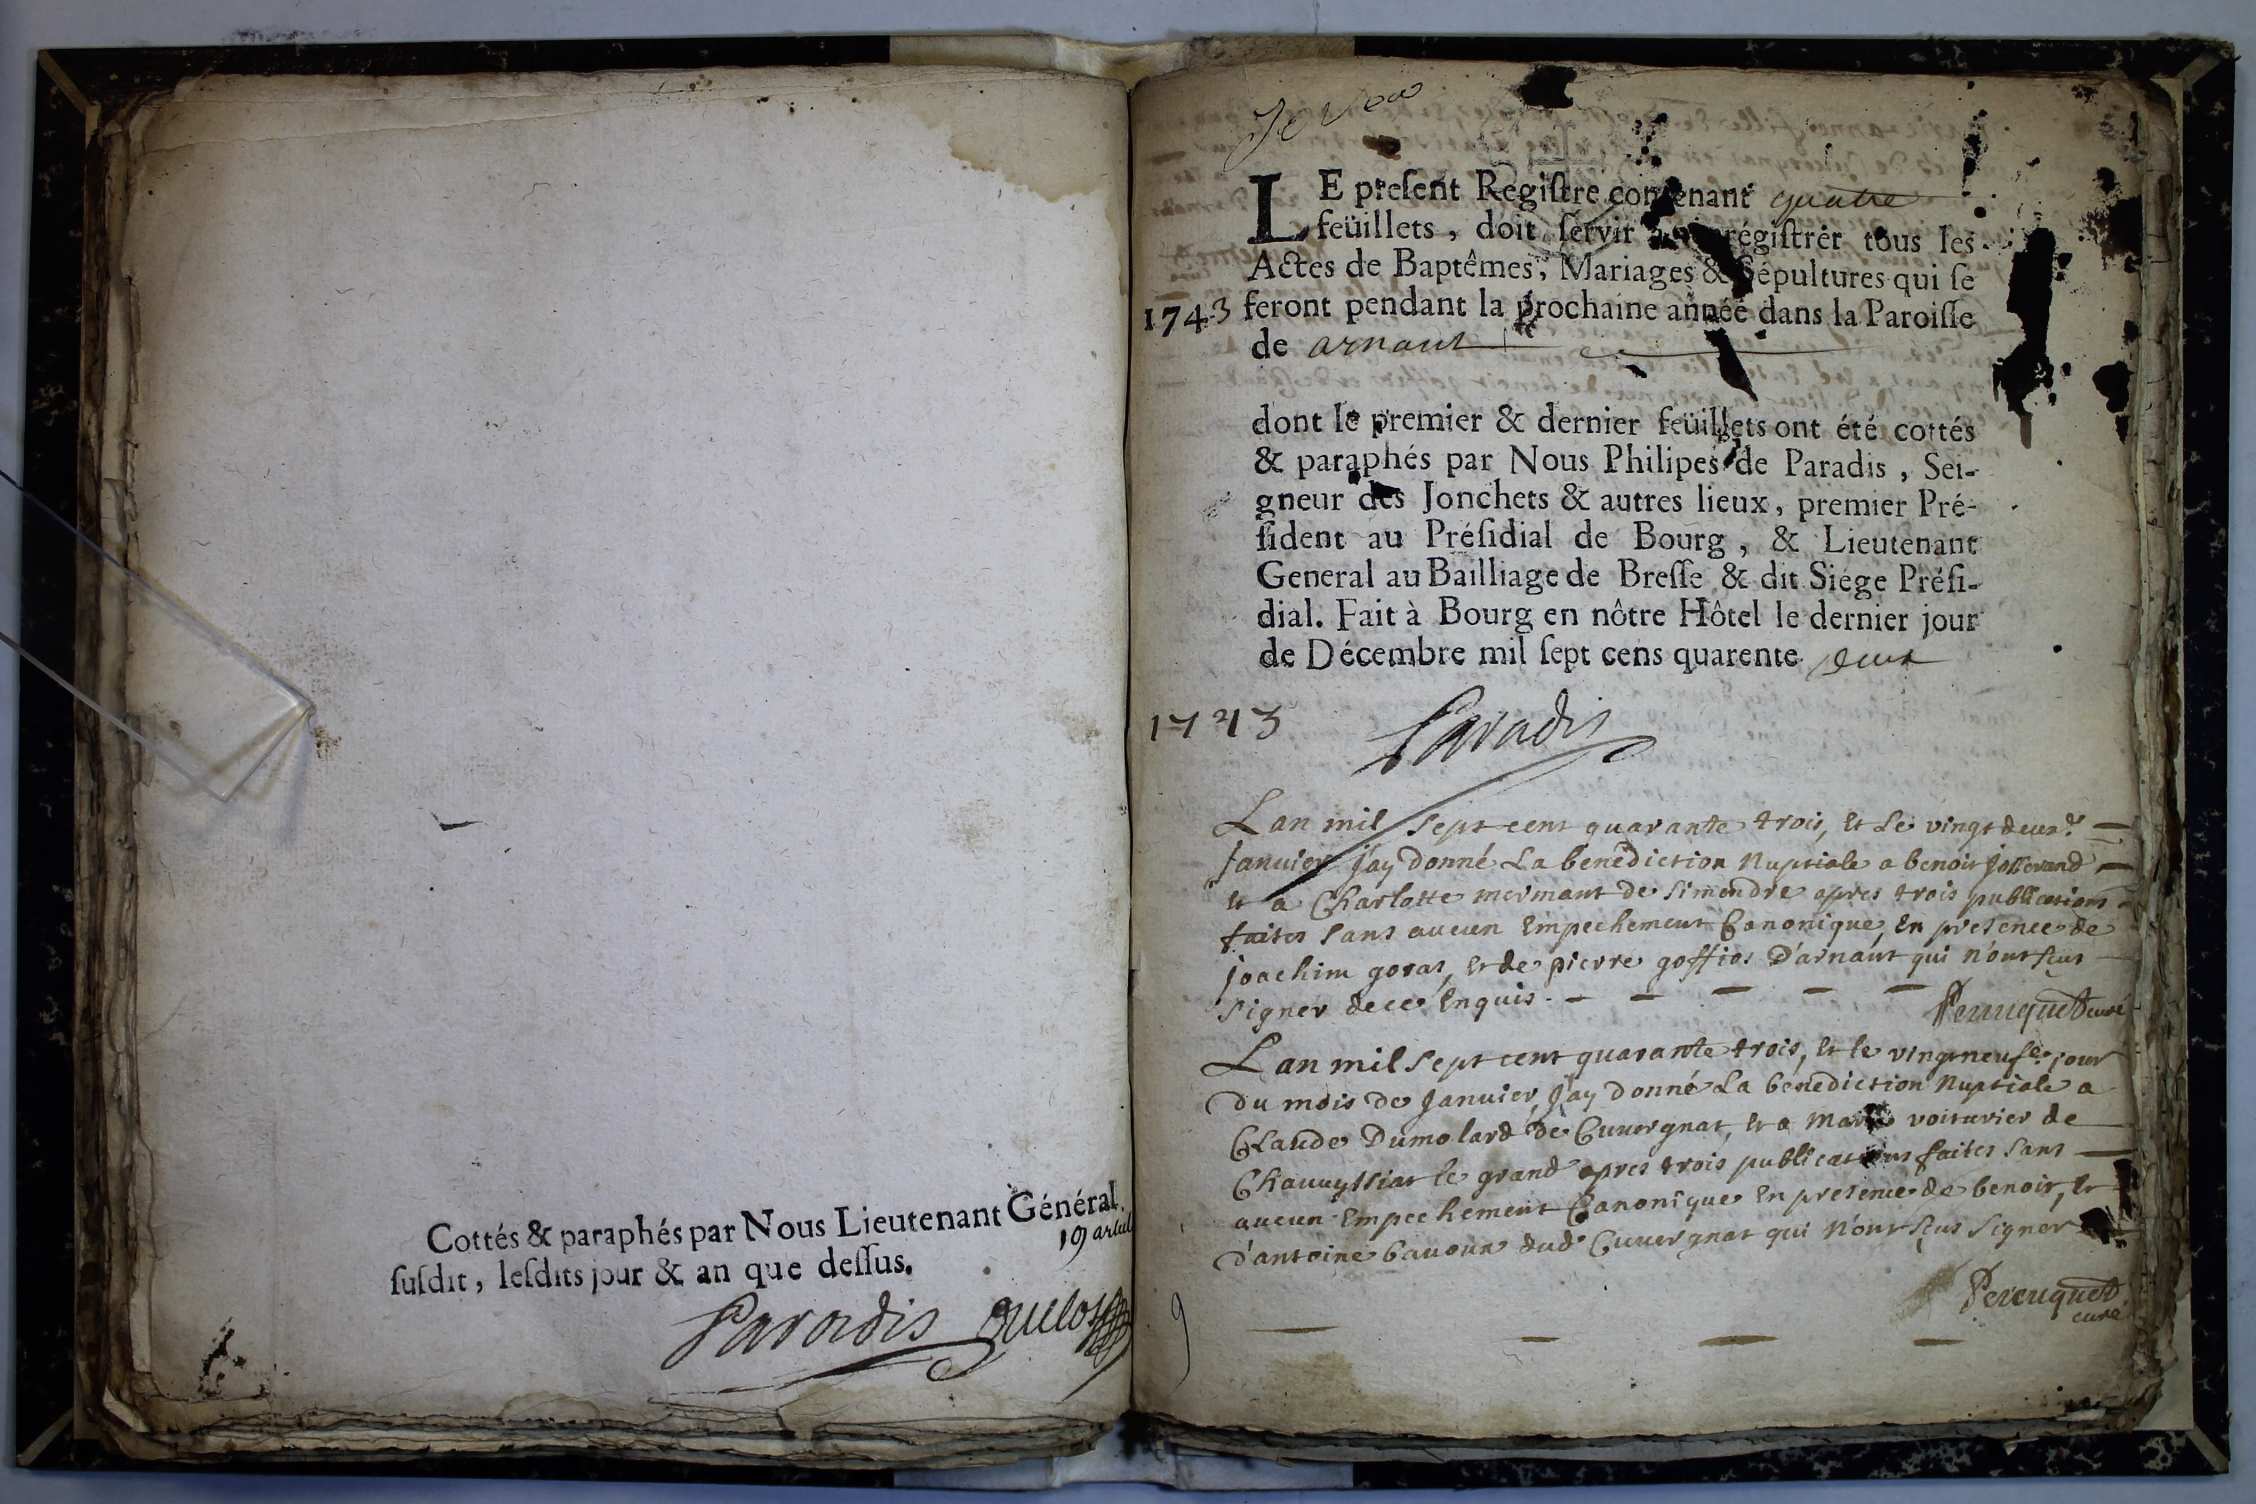 Cottés & paraphés par Nous Lieutenant Général
19
susdit, lesdits jour & an que dessus.
Paradis
LE present Registre contenant quatre
feüillets, doit servir à enrégistrer tous les
Actes de Baptêmes, Mariages & Sépultures qui se
1743 feront pendant la prochaine année dans la Paroisse
de arnaut
dont le premier & dernier feüillets ont été cottés
& paraphés par Nous Philipes de Paradis, Sei-
gneur des Jonchets & autres lieux, premier Pré-
sident au Présidial de Bourg, & Lieutenant
General au Bailliage de Bresse & dit Siége Prési-
dial. Fait à Bourg en nôtre Hôtel le dernier jour
de Décembre mil sept cens quarente deux
1743
Paradis
Lan mil sept cent quarante trois, et Le vingt deux.e
Janvier J'ay donné La benediction Nuptiale a benoit Josserand
et a Charlotte mermant de Simandre apres trois publications
faites sans aucun Empechement Canonique, En presence de
joachim goras, et de pierre goffios D'arnaut qui n'ont sçus
signer de ce Enquis.
Perruquet curé
Lan mil sept cent quarante trois, et le vingtneuf.e jour
Du mois de Janvier, J'ay donné La benediction Nuptiale a
Claude Dumolard de Cuvergnat, et a Marie voiturier de
Chavuyssiat le grand apres trois publications faites sans
aucun Empechement Canonique En presence de benoit, et
d'antoine bavoux dud Cuvergnat qui N'ont sçus signer
Perruquet
curé